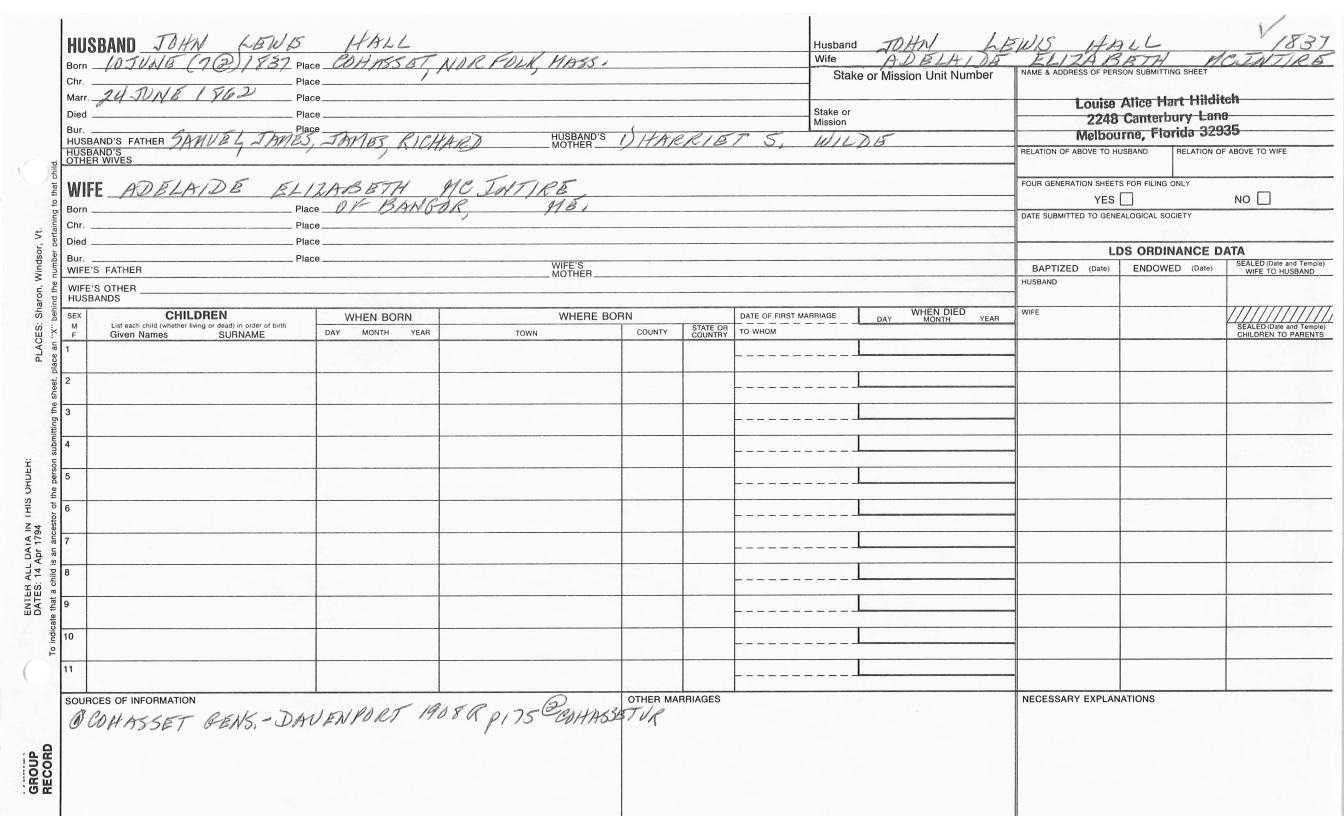 HUSBAND JOHN LEWIS HALL
Born 10 JUNE (7②) 1837 Place COHASSET, NORFOLK, MASS.
Chr. Place
Marr. 24 JUNE 1862 Place
Died Place
Bur. Place
HUSBAND'S FATHER SAMUEL, JAMES, JAMES, RICHARD HUSBAND'S MOTHER 1) HARRIET S. WILDE
HUSBAND'S OTHER WIVES
WIFE ADELAIDE ELIZABETH MCINTIRE
Born Place OF BANGOR, ME.
Chr. Place
Died Place
Bur. Place
WIFE'S FATHER WIFE'S MOTHER
WIFE'S OTHER HUSBANDS
Husband JOHN LEWIS HALL 1837
Wife ADELAIDE ELIZABETH MCINTIRE
Stake or Mission Unit Number
Stake or Mission
NAME & ADDRESS OF PERSON SUBMITTING SHEET
Louise Alice Hart Hilditch
2248 Canterbury Lane
Melbourne, Florida 32935
RELATION OF ABOVE TO HUSBAND RELATION OF ABOVE TO WIFE
FOUR GENERATION SHEETS FOR FILING ONLY
YES NO
DATE SUBMITTED TO GENEALOGICAL SOCIETY
LDS ORDINANCE DATA
BAPTIZED (Date) ENDOWED (Date) SEALED (Date and Temple) WIFE TO HUSBAND
HUSBAND
WIFE
SEALED (Date and Temple) CHILDREN TO PARENTS
SEX M F
CHILDREN
List each child (whether living or dead) in order of birth
Given Names SURNAME
WHEN BORN
DAY MONTH YEAR
WHERE BORN
TOWN COUNTY STATE OR COUNTRY
DATE OF FIRST MARRIAGE
TO WHOM
WHEN DIED
DAY MONTH YEAR
1
2
3
4
5
6
7
8
9
10
11
SOURCES OF INFORMATION
① COHASSET GENS. - DAVENPORT 1908R p175 ② COHASSET VR
OTHER MARRIAGES
NECESSARY EXPLANATIONS
ENTER ALL DATA IN THIS ORDER:
DATES: 14 Apr 1794
PLACES: Sharon, Windsor, Vt.
To indicate that a child is an ancestor of the person submitting the sheet, place an "X" behind the number pertaining to that child.
GROUP
RECORD